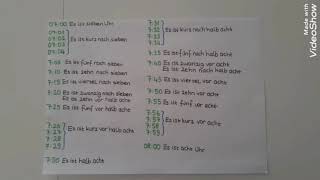 07:00 Es ist sieben Uhr
07:01
07:02
07:03
07:04
Es ist kurz nach sieben
7:05 Es ist fünf nach sieben
7:10 Es ist zehn nach sieben
7:15 Es ist viertel nach sieben
7:20 Es ist zwanzig nach sieben
Es ist zehn vor halb acht
7:25 Es ist fünf vor halb acht
7:26
7:27
7:28
7:29
Es ist kurz vor halb acht
7:30 Es ist halb acht
7:31
7:32
7:33
7:34
Es ist kurz nach halb acht
7:35 Es ist fünf nach halb acht
7:40 Es ist zwanzig vor acht
Es ist zehn nach halb acht
7:45 Es ist viertel vor acht
7:50 Es ist zehn vor acht
7:55 Es ist fünf vor acht
7:56
7:57
7:58
7:59
Es ist kurz vor acht
08:00 Es ist acht Uhr
Made with
VideoShow